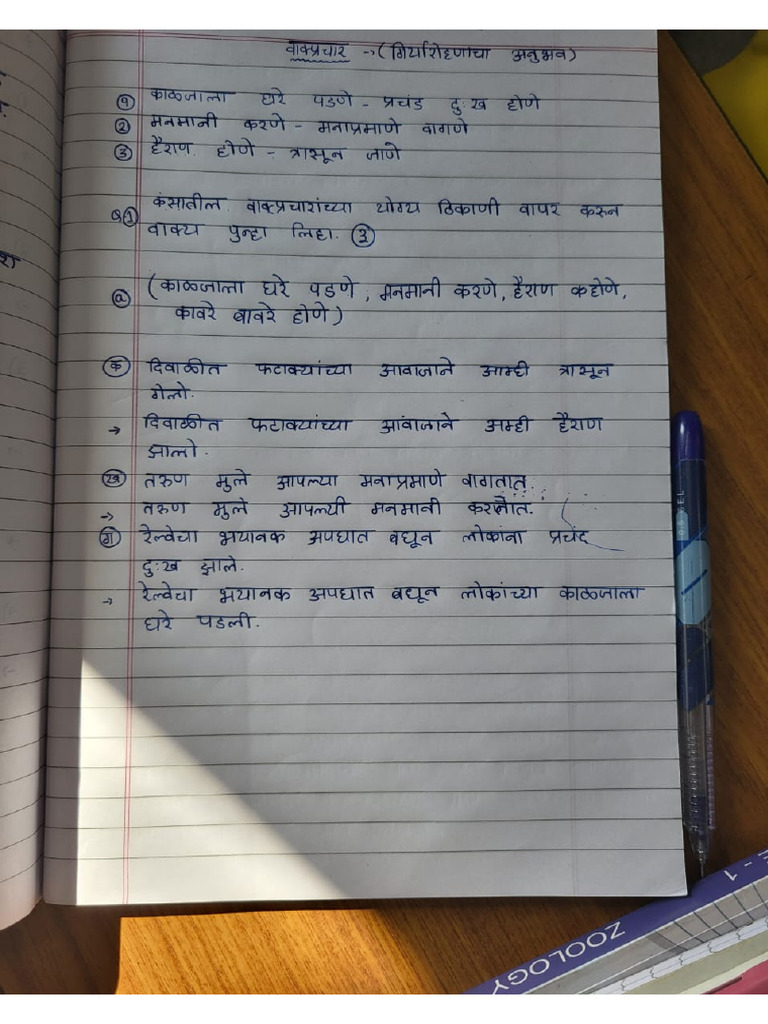 वाक्प्रचार → (गिर्यारोहणाचा अनुभव)
① काळजाला घरे पडणे - प्रचंड दुःख होणे
② मनमानी करणे - मनाप्रमाणे वागणे
③ हैराण होणे - त्रासून जाणे
Q① कंसातील वाक्प्रचारांच्या योग्य ठिकाणी वापर करुन
वाक्य पुन्हा लिहा. ③
ⓐ (काळजाला घरे पडणे, मनमानी करणे, हैराण होणे,
कावरे बावरे होणे)
क दिवाळीत फटाक्यांच्या आवाजाने आम्ही त्रासून
गेलो.
→ दिवाळीत फटाक्यांच्या आवाजाने अम्ही हैराण
झालो.
ख तरुण मुले आपल्या मनाप्रमाणे वागतात.
→ तरुण मुले आपल्यी मनमानी करतात.
ग रेल्वेचा भयानक अपघात बघून लोकांना प्रचंद
दुःख झाले.
→ रेल्वेचा भयानक अपघात बघून लोकांच्या काळजाला
घरे पडली.
ZOOLOGY
- 1